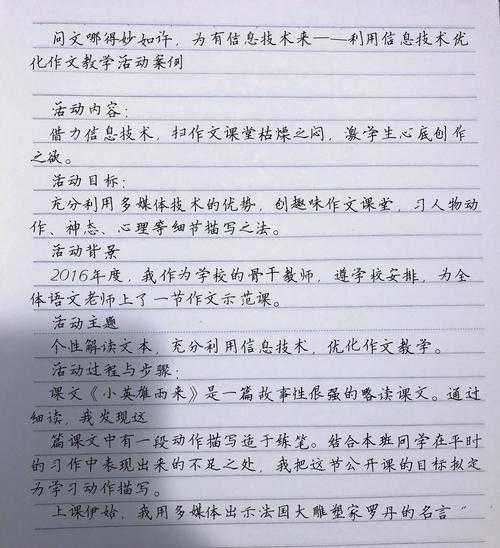 问文哪得妙如许，为有信息技术来——利用信息技术优
化作文教学活动案例
活动内容：
借力信息技术，扫作文课堂枯燥之闷，激学生心底创作
之欲。
活动目标：
充分利用多媒体技术的优势，创趣味作文课堂，习人物动
作、神态、心理等细节描写之法。
活动背景
2016年度，我作为学校的骨干教师，遵学校安排，为全
体语文老师上了一节作文示范课。
活动主题
个性解读文本，充分利用信息技术，优化作文教学。
活动过程与步骤：
课文《小英雄雨来》是一篇故事性很强的略读课文。通过
细读，我发现这
篇课文中有一段动作描写适于练笔。结合本班同学在平时
的习作中表现出来的不足之处，我把这节公开课的目标拟定
为学习动作描写。
上课伊始，我用多媒体出示法国大雕塑家罗丹的名言“